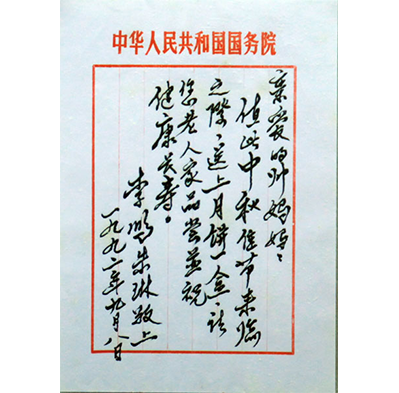 中华人民共和国国务院
亲爱的帅妈妈:
值此中秋佳节来临
之际,送上月饼一盒,请
您老人家品尝并祝
健康长寿。
李鹏朱琳敬上
一九九二年九月八日